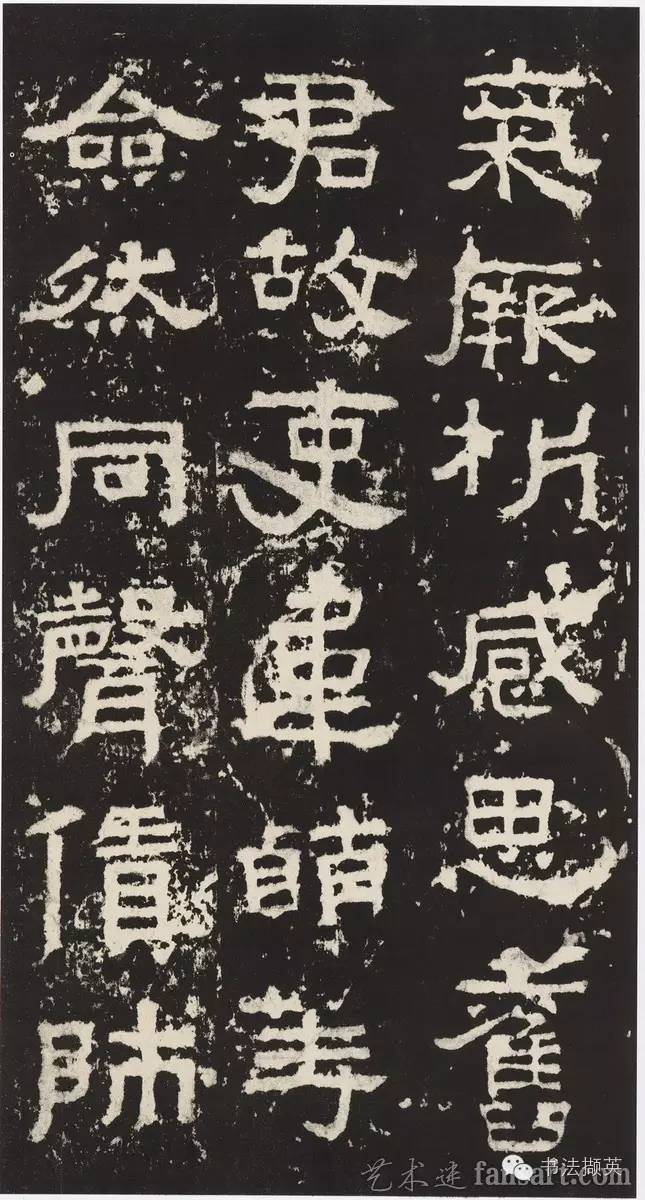 氣厥析感思舊
君故吏韋萌等
僉然同聲賃師
书法撷英
艺术迷 fansart.com